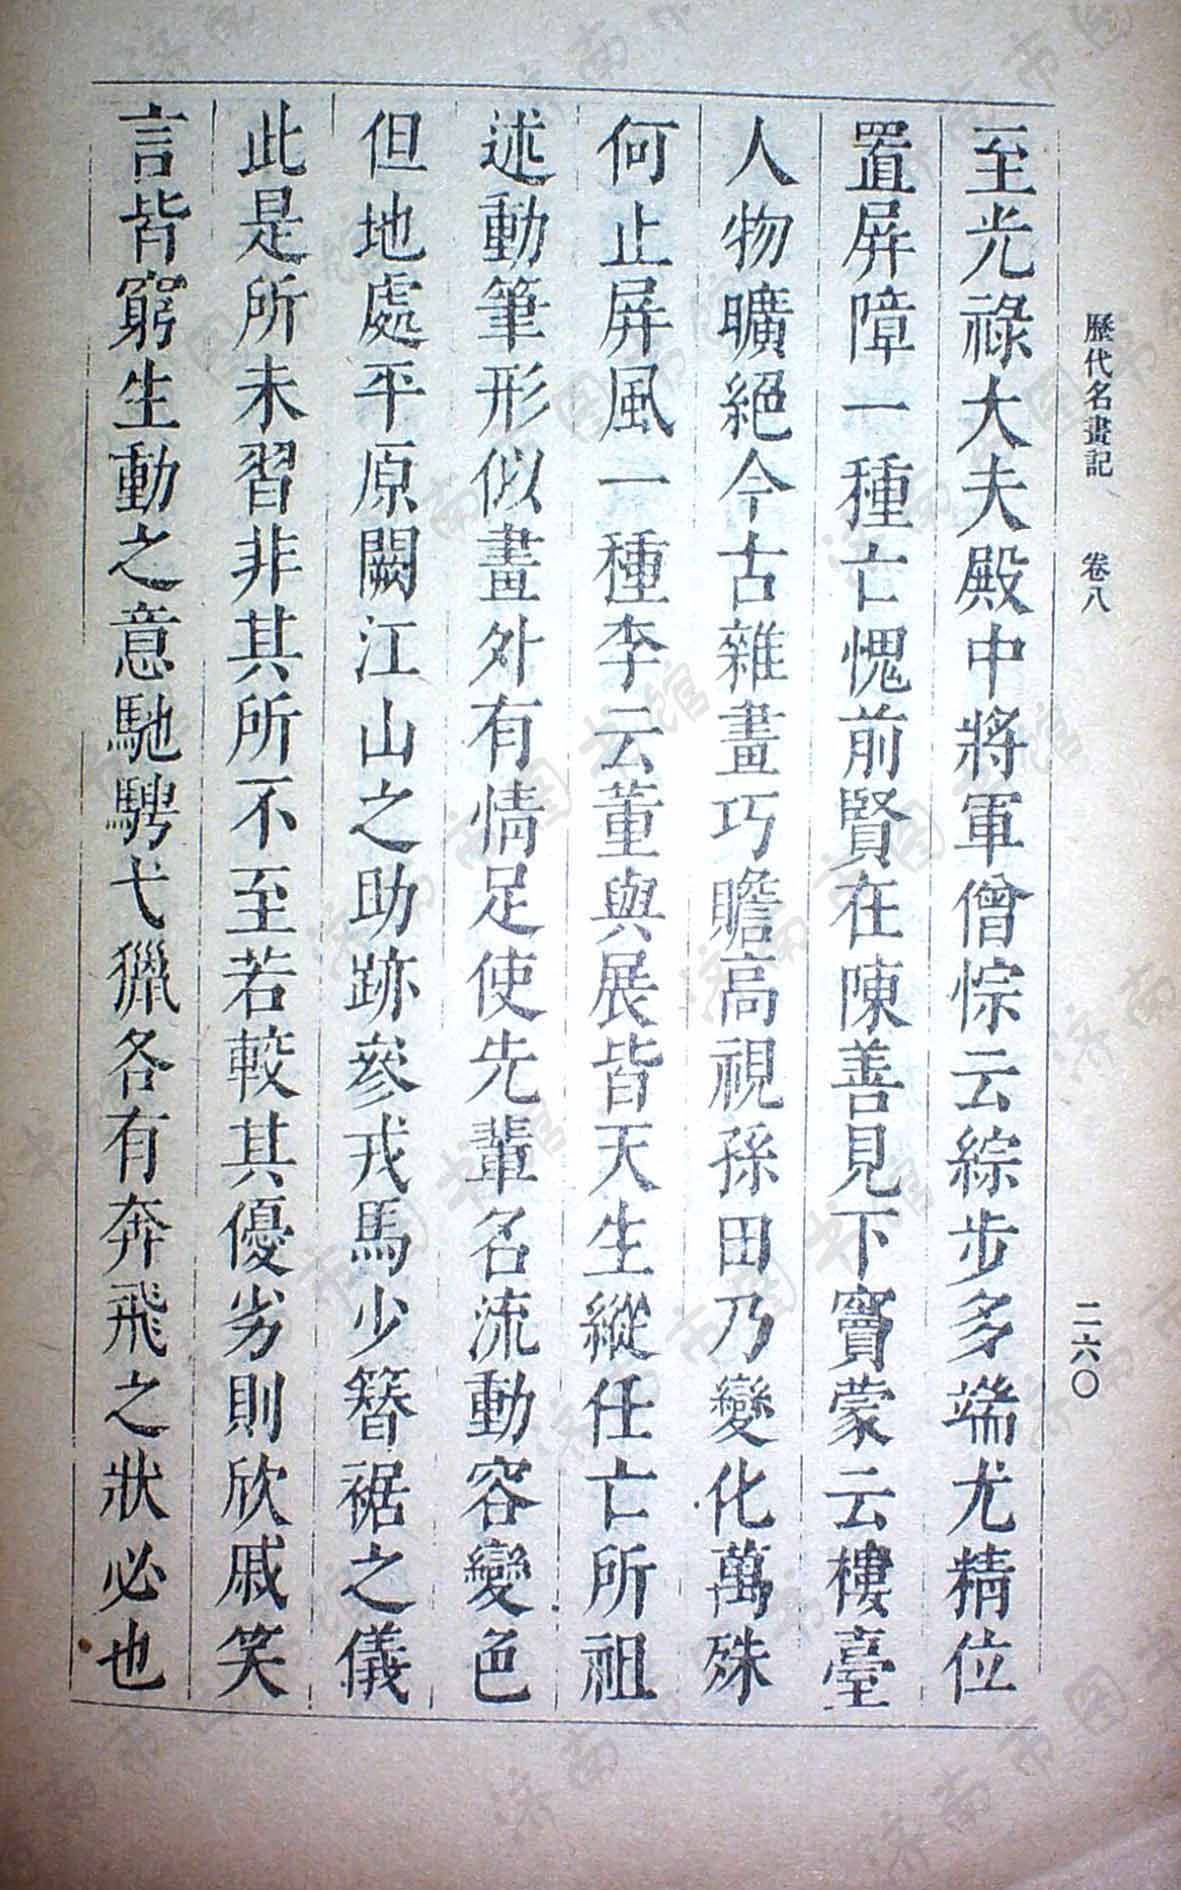 歷代名畫記 卷八 二六〇
至光祿大夫殿中將軍僧悰云綜步多端尤精位
置屛障一種亡愧前賢在陳善見下竇蒙云樓臺
人物曠絕今古雜畫巧贍高視孫田乃變化萬殊
何止屛風一種李云董與展皆天生縱任亡所祖
述動筆形似畫外有情足使先輩名流動容變色
但地處平原闕江山之助跡參戎馬少簪裾之儀
此是所未習非其所不至若較其優劣則欣戚笑
言皆窮生動之意馳騁弋獵各有奔飛之狀必也
济南市图书馆